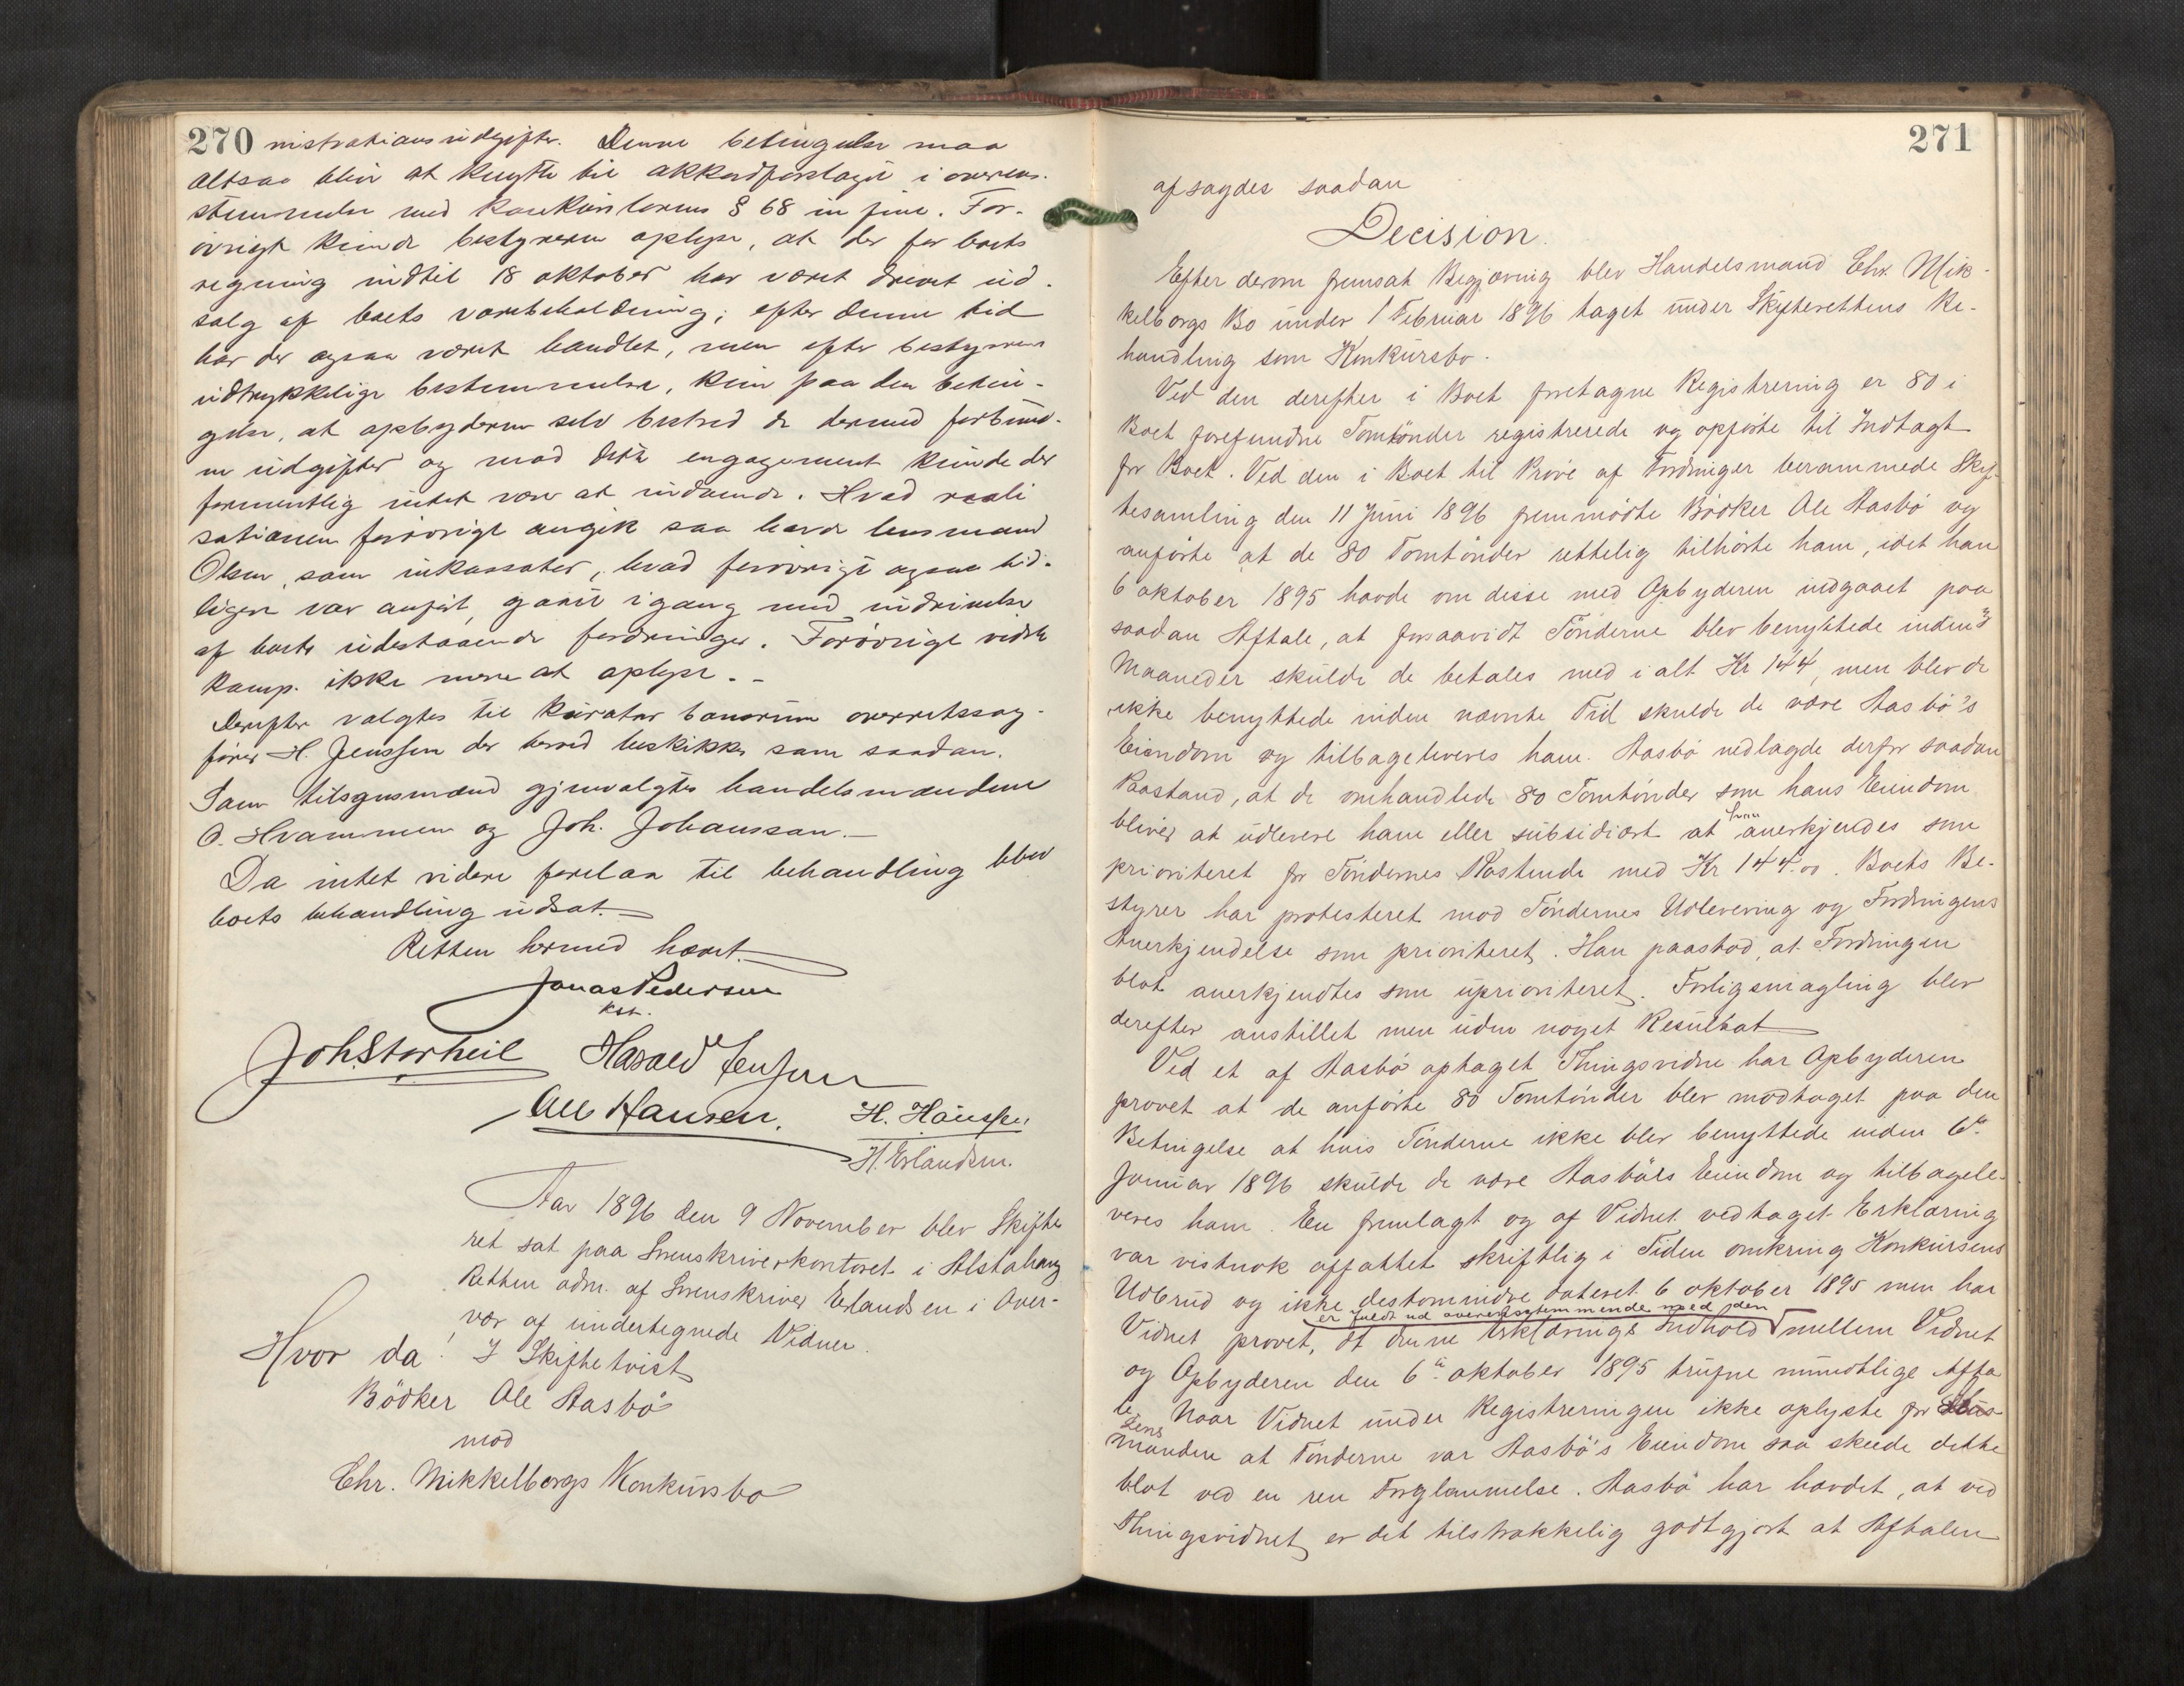 270 nistrationsudgifter. Denne betingelse maa
altsaa blive at knytte til akkordforslaget i overens-
stemmelse med konkurslovens § 68 in fine. For-
øvrigt kunde bestyreren oplyse, at der for boets
regning indtil 18 oktober har været drevet ud-
salg af boets varebeholdning; efter denne tid
har der ogsaa været handlet, men efter bestyrerens
udtrykkelige bestemmelse, kun paa den betin-
gelse, at opbyderen selv bestred de dermed forbund-
ne udgifter og mod dette engagement kunde der
formentlig intet være at indvende. Hvad reali
sationen forøvrigt angik saa havde lensmand
Olsen, som inkassator, hvad forøvrigt ogsaa tid-
ligere var anført, gaaet igang med inddrivelse
af boets udestaaende fordringer. Forøvrigt vidste
komp. ikke mere at oplyse. -
Derefter valgtes til kurator bonorum overretssag-
fører H. Jenssen der herved beskikkes som saadan.
Som tilsynsmænd gjenvalgtes handelsmændene
O. Hvammen og Joh. Johanssan. -
Da intet videre forelaa til behandling blev
boets behandling udsat. -
Retten hermed hævet. -
Jonas Pedersen
kst.
Joh. Storheil Harald Jenssen
Ole Hansen. H. Hanssen
H. Erlandsen.
Aar 1896 den 9 November blev Skifte
ret sat paa Sorenskriverkontoret i Alstahaug
Retten adm. af Sorenskriver Erlandsen i Over-
vær af undertegnede Vidner.
Hvor da! I Skiftetvist
Bödker Ole Aasbö
mod
Chr. Mikkelborgs Konkursbo
271
afsagdes saadan
Decision.
Efter derom fremsat Begjæring blev Handelsmand Chr. Mik-
kelborgs Bo under 1 Februar 1896 taget under Skifterettens Be-
handling som Konkursbo.
Ved den derefter i Boet foretagne Registrering er 80 i
Boet forefundne Tomtönder registrerede og opförte til Indtægt
for Boet. Ved den i Boet til Pröve af Fordringer berammede Skif-
tesamling den 11 Juni 1896 fremmödte Bödker Ole Aasbö og
anförte at de 80 Tomtönder rettelig tilhörte ham, idet han
6 oktober 1895 havde om disse med Opbyderen indgaaet paa
saadan Aftale, at forsaavidt Tönderne blev benyttede inden 3
Maaneder skulde de betales med i alt Kr 144, men blev de
ikke benyttede inden nævnte Tid skulde de være Aasbö's
Eiendom og tilbageleveres ham. Aasbö nedlagde derfor saadan
Paastand, at de omhandlede 80 Tomtönder som hans Eiendom
bliver at udlevere ham eller subsidiært at han anerkjendes som
prioriteret for Töndernes Kostende med Kr 144.00. Boets Be-
styrer har protesteret mod Töndernes Udlevering og Fordringens
Anerkjendelse som prioriteret. Han paastod, at Fordringen
blot anerkjendtes som uprioriteret. Forligsmægling blev
derefter anstillet men uden noget Resultat
Ved et af Aasbö optaget Thingsvidne har Opbyderen
provet at de anförte 80 Tomtönder blev modtaget paa den
Betingelse at hvis Tönderne ikke blev benyttede inden 6te
Januar 1896 skulde de være Aasböls Eiendom og tilbagele-
veres ham. En fremlagt og af Vidnet vedtaget Erklæring
var vistnok affattet skriftlig i Tiden omkring Konkursens
Udbrud og ikke destomindre dateret 6 oktober 1895 men har
er fuldt ud overensstemmende med den
Vidnet provet, at denne Erklærings Indhold mellem Vidnet
og Opbyderen den 6te oktober 1895 trufne mundtlige Afta
le. Naar Vidnet under Registreringen ikke oplyste for
Lens
manden at Tönderne var Aasbö's Eiendom saa skede dette
blot ved en ren Forglemmelse. Aasbö har hævdet, at ved
Thingsvidnet er det tilstrækkelig godtgjort at Aftalen